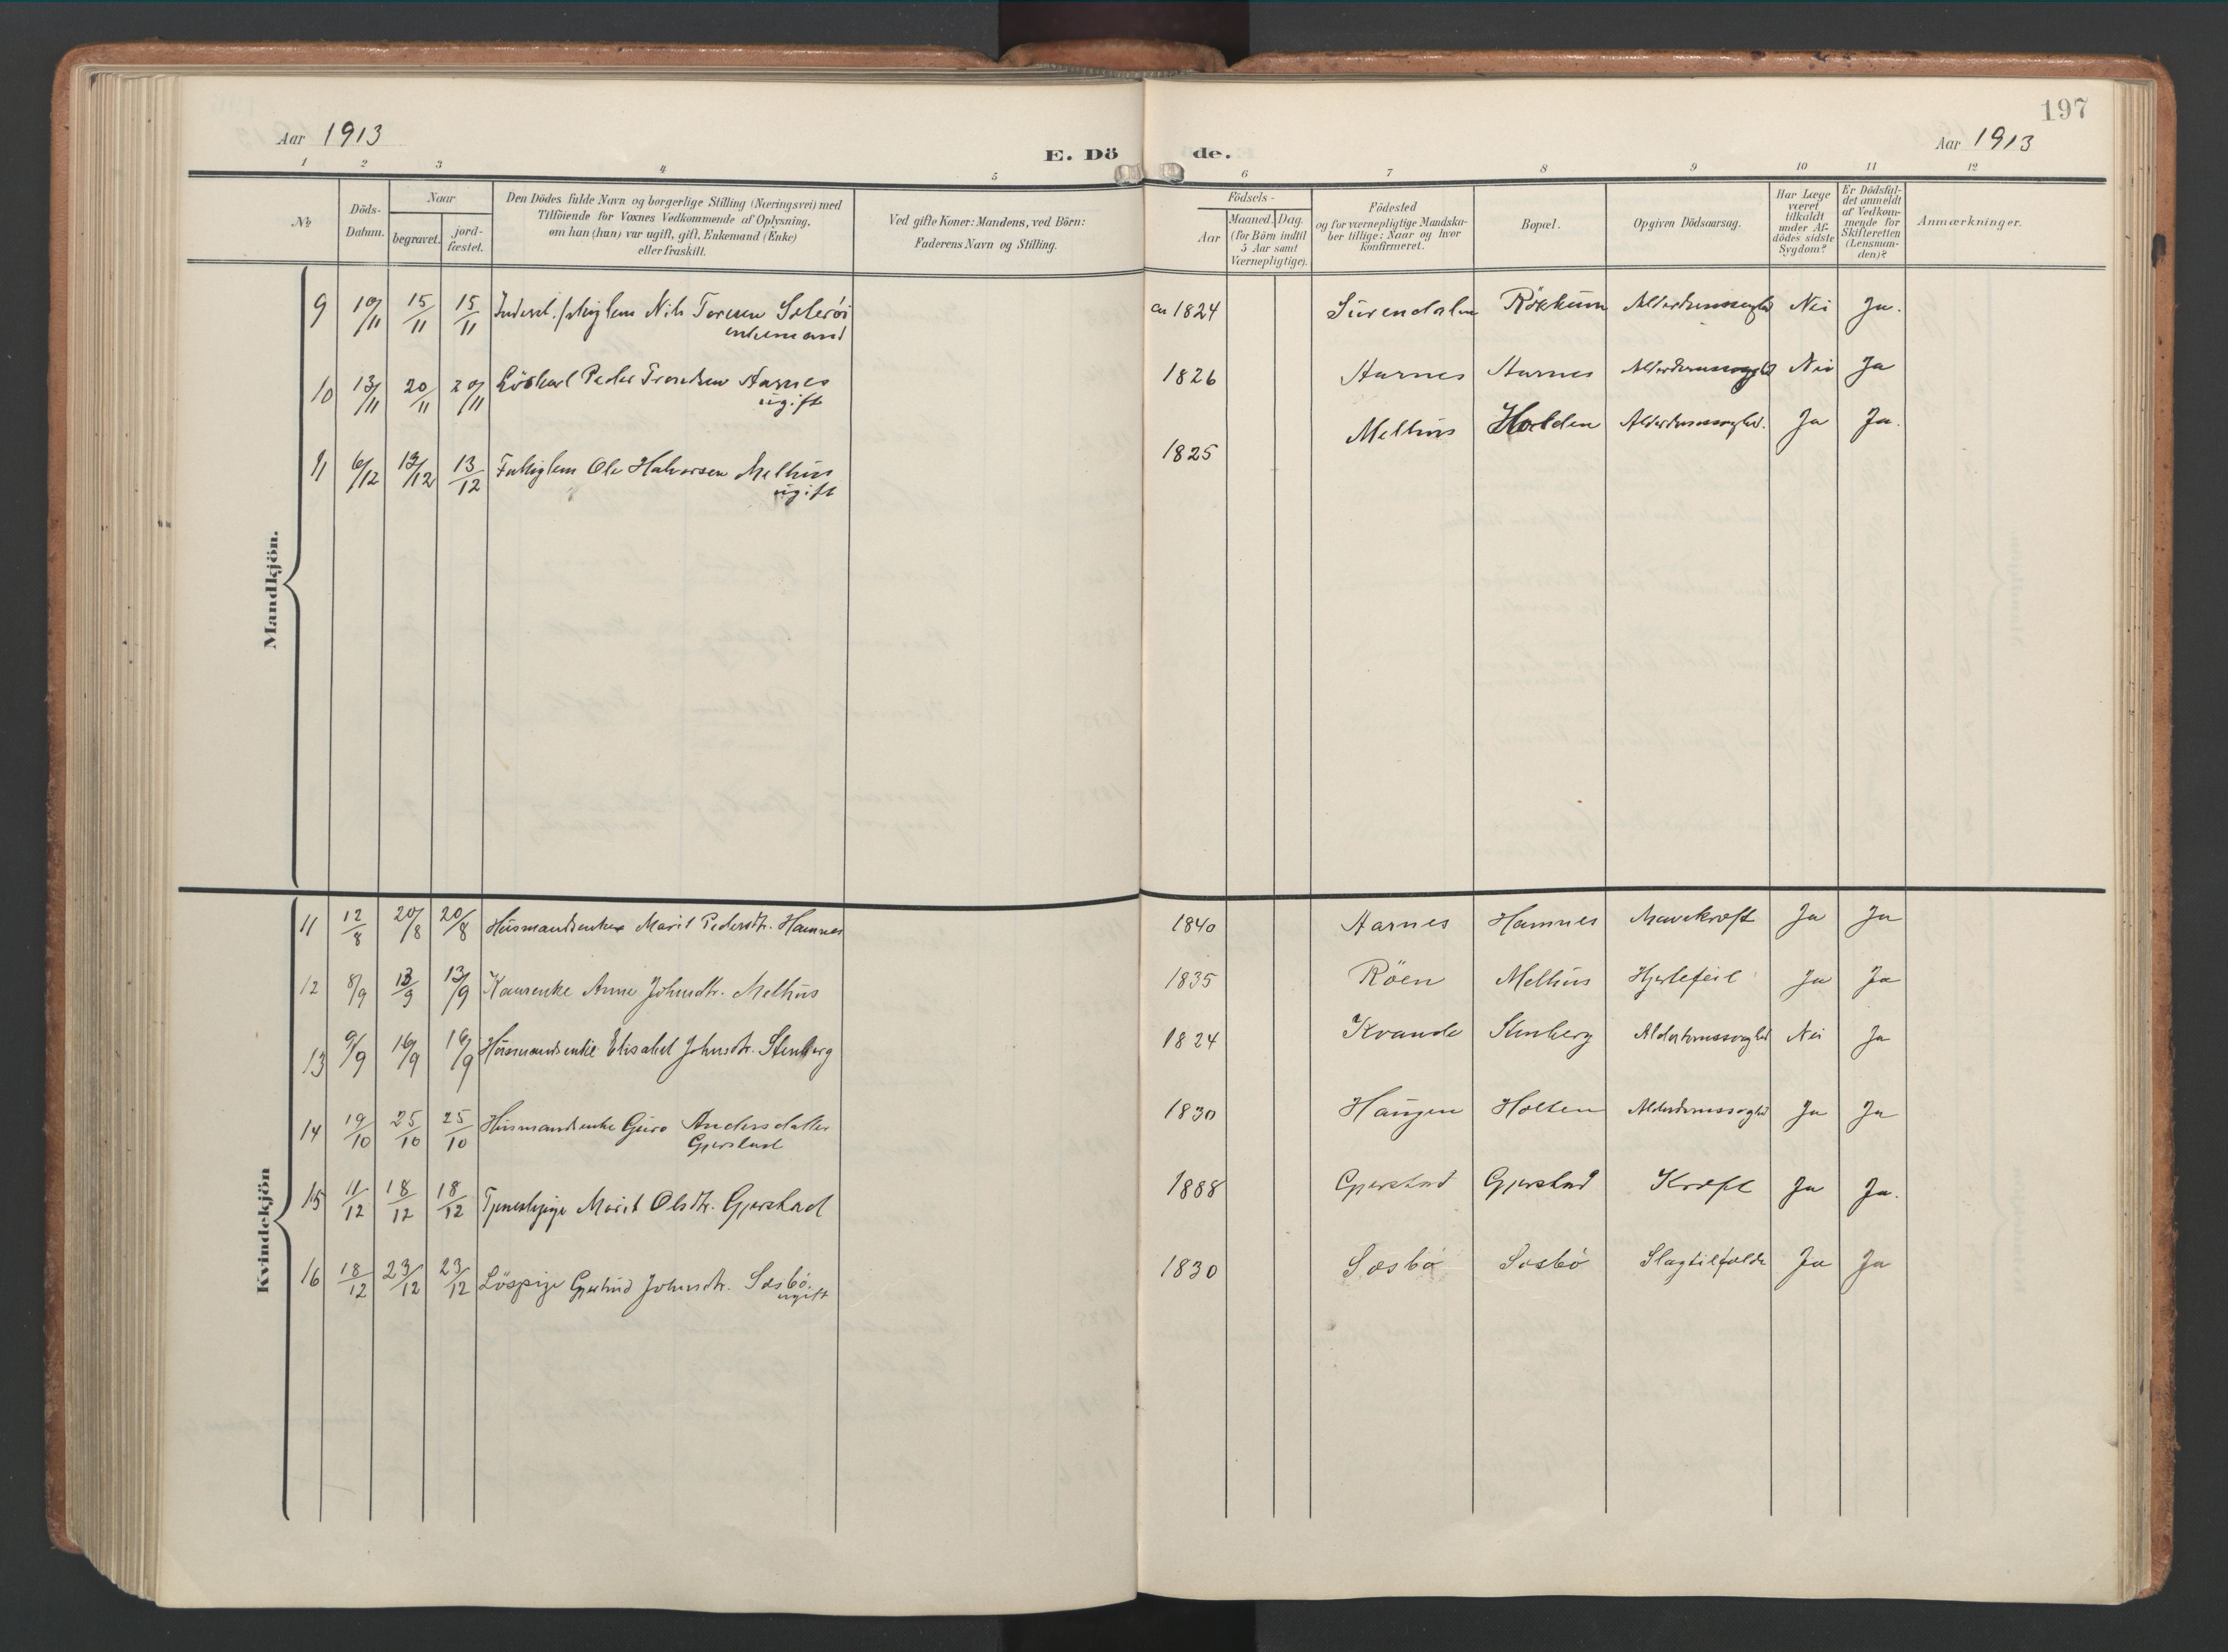 197
Aar 1913
Aar 1913
E. Dö de.
1 2 3 4 5 6 7 8 9 10 11 12
No
Döds-Datum.
Naar
begravet.
jord-fæstet.
Den Dödes fulde Navn og borgerlige Stilling (Næringsvei) med
Tilföiende for Voxnes Vedkommende af Oplysning,
om han (hun) var ugift, gift, Enkemand (Enke)
eller fraskilt.
Ved gifte Koner: Mandens, ved Börn:
Faderens Navn og Stilling.
Födsels-
Aar
Maaned. Dag.
(for Börn indtil
5 Aar samt
Værnepligtige).
Födested
og for værnepligtige Mandska-
ber tillige: Naar og hvor
konfirmeret.
Bopæl.
Opgiven Dödsaarsag.
Har Læge
været
tilkaldt
under Af-
dödes sidste
Sygdom?
Er Dödsfal-
det anmeldt
af Vedkom-
mende for
Skifteretten
(Lensman-
den)?
Anmærkninger.
Mandkjön.
9 10/11 15/11 15/11 Nils Toresen Sæterøi ca 1824 Surendalen Röskum Alderdomssvaghed Nei Ja.
enkemand
10 13/11 20/11 20/11 Löskarl Peder Trondsen Aarnes 1826 Aarnes Aarnes Alderdomssvaghed Nei Ja
ugift
11 6/12 13/12 13/12 Fattiglem Ole Halvorsen Melhus 1825 Melhus Holden Alderdomssvaghed. Ja Ja.
ugift
Kvindekjön
11 12/8 20/8 20/8 Husmandsenke Marit Pedersdtr. Hamnes 1840 Aarnes Hamnes Mavekræft Ja Ja
12 8/9 13/9 13/9 Kaarenke Anne Johnsdtr. Melhus 1835 Röen Melhus Hjertefeil Ja Ja
13 9/9 16/9 16/9 Husmandsenke Elisabet Johnsdtr. Stenberg 1824 Kvande Stenberg Alderdomssvaghed Nei Ja
14 19/10 25/10 25/10 Husmandsenke Guro Andersdatter 1830 Haugen Holten Alderdomssvaghed Ja Ja
Gjerstad
15 11/12 18/12 18/12 Tjenestepige Marit Olsdtr. Gjerstad 1888 Gjerstad Gjerstad Kræft Ja Ja.
16 18/12 23/12 23/12 Löspige Gjertrud Johnsdtr. Sæsbö. 1830 Sæsbö Sæsbö Slagtilfælde Ja Ja
ugift